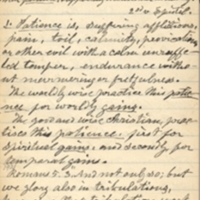 2nd Epistle.
1st Patience is, suffering afflictions,
pain, toil, calamity, provocation
or other evil with a calm unruffl-
ed temper, endurance with-
out murmering or fretfulness.
The worldly wise practice this patie-
nce for worldly gains.
The good and wise Christian, prac-
tises this patience. first for
Spiritual gains. and secondly for
temporal gains.
Romans 5:3 And not only so; but
we glory also in tribulations,